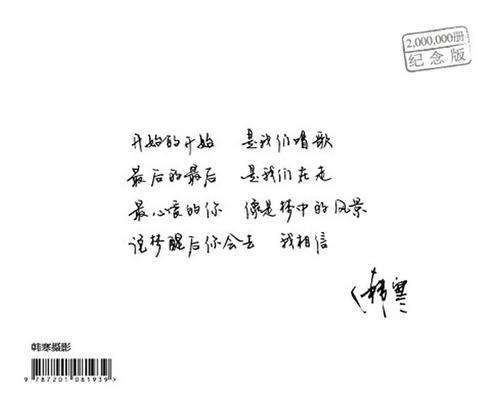 2,000,000册
纪念版
开始的开始 是我们唱歌
最后的最后 是我们在走
最心爱的你 像是梦中的风景
说梦醒后你会去 我相信
韩寒
韩寒摄影
9787201081939>